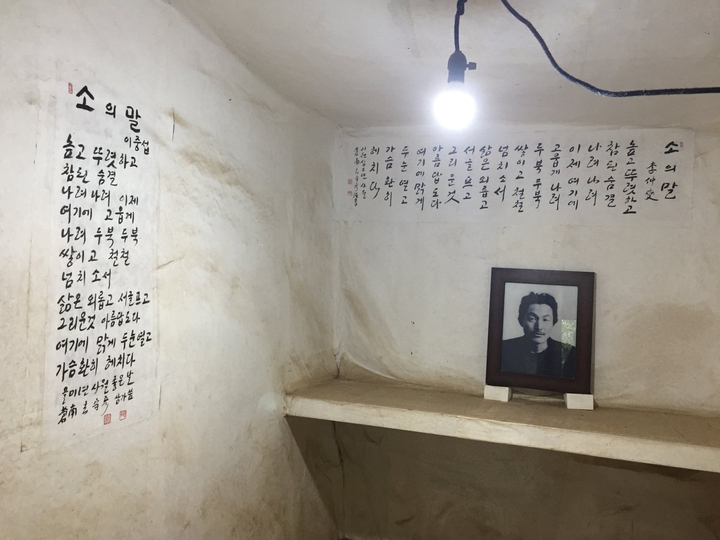 소의 말
이중섭
높고 뚜렷하고
참된 숨결
나려 나려 이제
여기에 고웁게
나려 두북 두북
쌓이고 철철
넘치소서
삶은 외롭고 서글프고
그리운것 아름답도다
여기에 맑게 두눈열고
가슴환히 헤치다
소의 말
李仲燮
높고 뚜렷하고
참된 숨결
나려 나려
이제 여기에
고웁게 나려
두북 두북
쌓이고 철철
넘치소서
삶은 외롭고
서글프고
그리운 것
아름답도다
여기에 맑게
두눈 열고
가슴 환히
헤치다